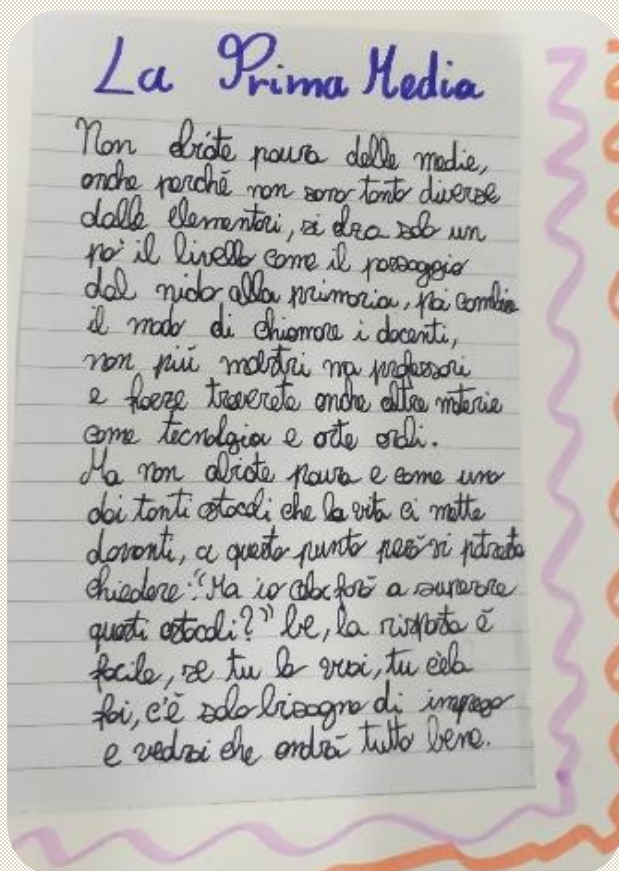 La Prima Media
Non abiate paura delle medie,
anche perché non sono tanto diverse
dalle elementari, si alza solo un
po' il livello come il passaggio
dal nido alla primaria, poi cambia
il modo di chiamare i docenti,
non più maestri ma professori
e forse troverete anche altre materie
come tecnologia e arte
Ma non abiate paura e come uno
dei tanti ostacoli che la vita ci mette
davanti, a questo punto però vi potreste
chiedere: "Ma io ce la farò a superare
questi ostacoli?" be, la risposta è
facile, se tu lo vuoi, tu ce la
fai, c'è solo bisogno di impegno
e vedrai che andrà tutto bene.